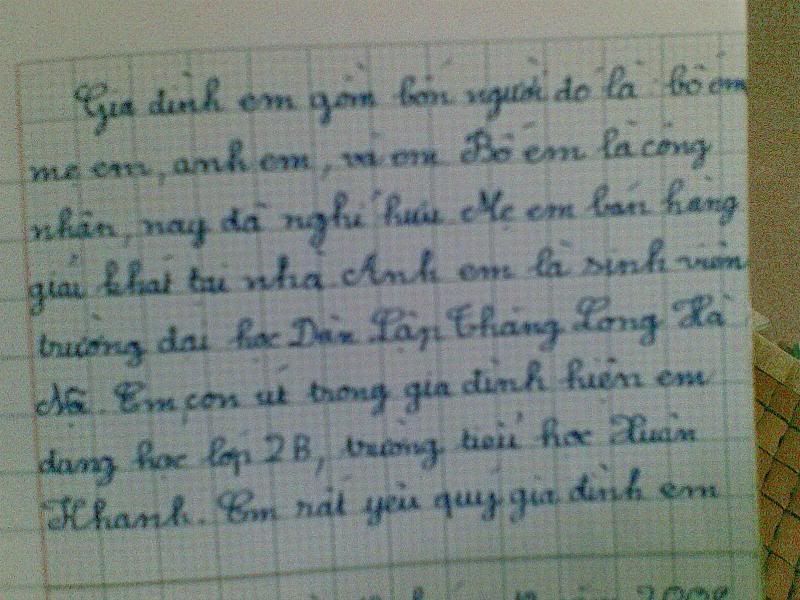 Gia đình em gồm bốn người đó là bố em
mẹ em, anh em, và em Bố em là công
nhân, nay đã nghỉ hưu Mẹ em bán hàng
giải khát tại nhà Anh em là sinh viên
trường đại học Dân Lập Thăng Long Hà
Nội. Em con út trong gia đình hiện em
đang học lớp 2B, trường tiểu học Xuân
Khanh. Em rất yêu quý gia đình em